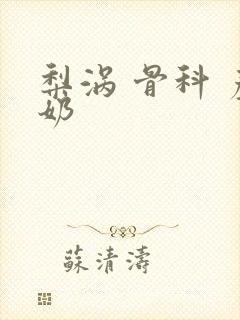 梨涡 骨科
奶
蘇清濤